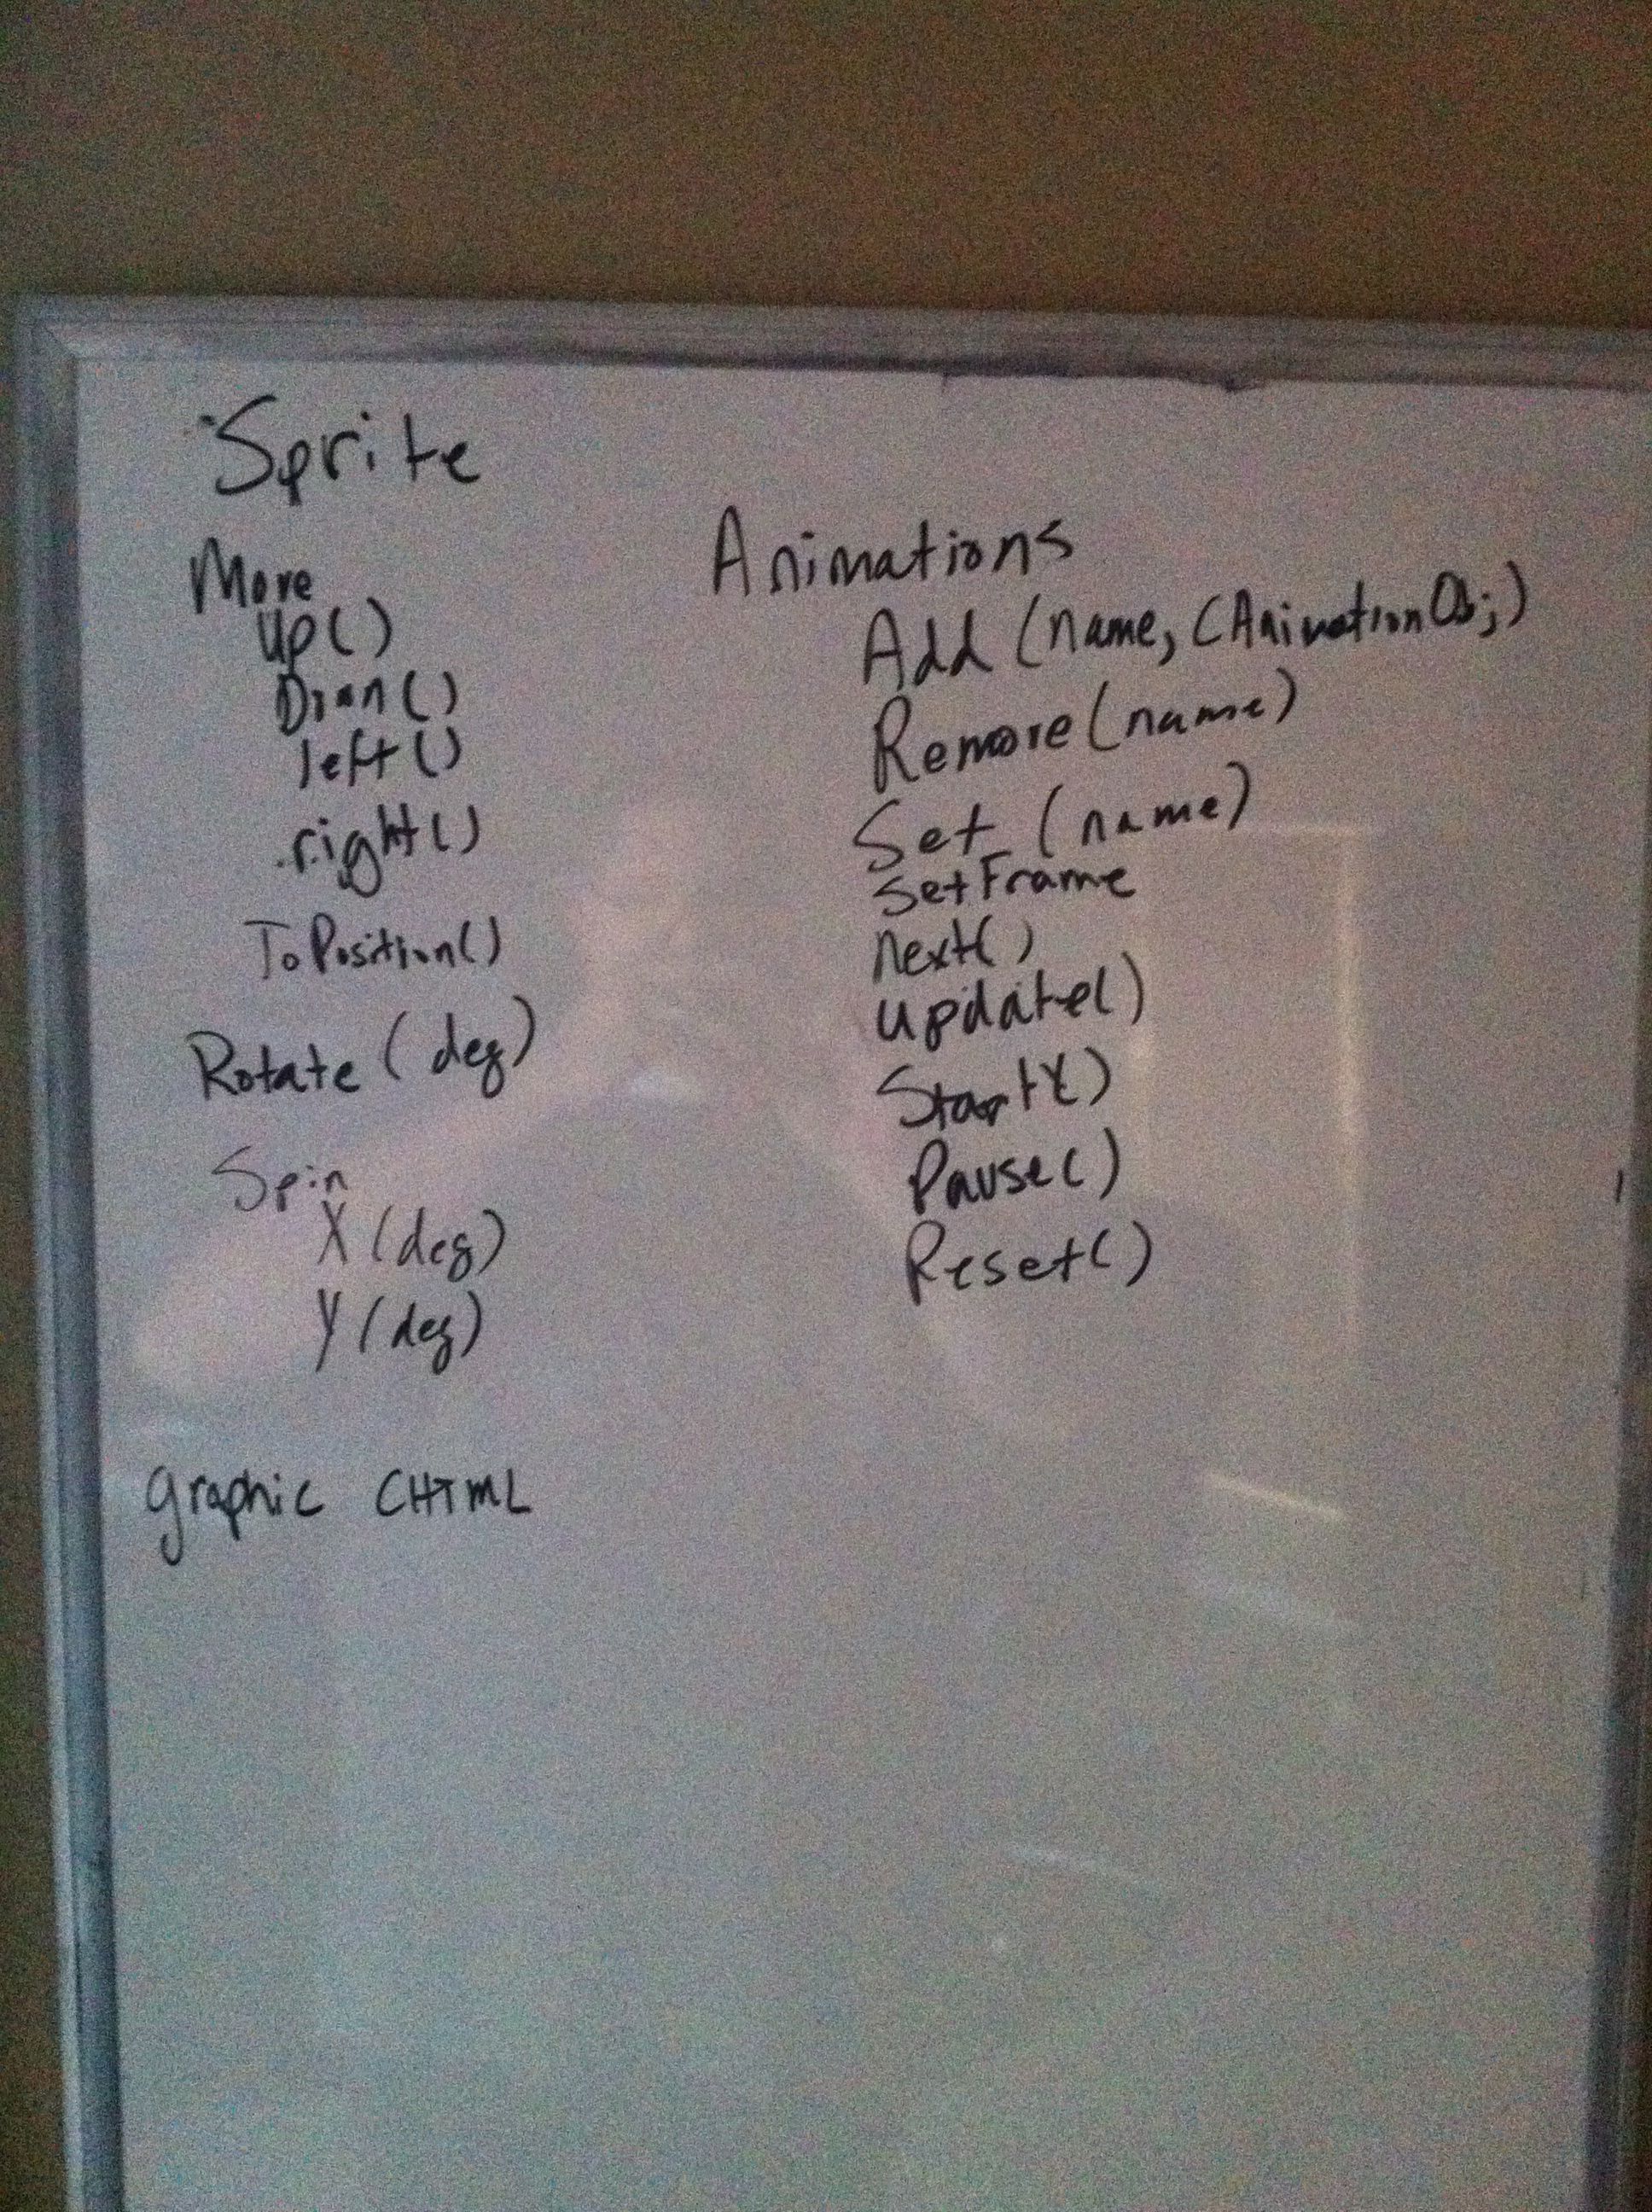 Sprite
Move
Up()
Down()
left()
right()
ToPosition()
Rotate (deg)
Spin
X (deg)
Y (deg)
graphic CHTML
Animations
Add (name, CAnimationObj)
Remove (name)
Set (name)
SetFrame
next()
update()
Start()
Pause()
Reset()